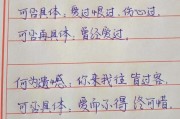 可否具体：爱过恨过，伤心过
可否再具体：曾经爱过.
何为遗憾：你来我往 皆过客
可否具体：爱而不得 终可惜.